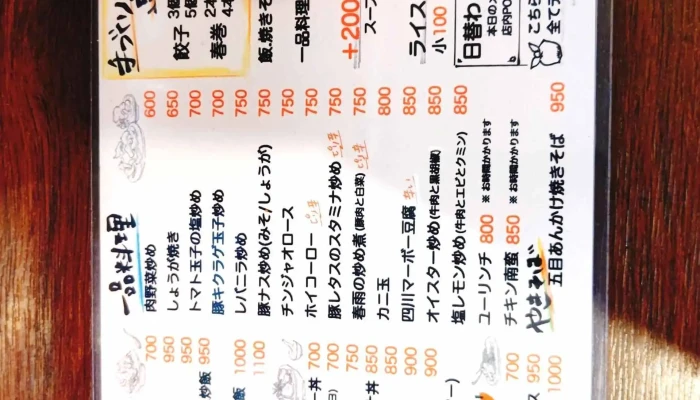 手づくり
餃子 3個
5個
春巻 2本
4本
飯、焼きそ
一品料理
+200
スープ
ライス
小100
日替わ
本日の
店内PO
こちら
全て
一品料理
肉野菜炒め 600
しょうが焼き 650
トマト玉子の塩炒め 700
豚キクラゲ玉子炒め 700
レバニラ炒め 750
豚ナス炒め(みそ/しょうが) 750
チンジャオロース 750
ホイコーロー ピリ辛 750
豚レタスのスタミナ炒め ピリ辛 750
春雨の炒め煮(豚肉と白菜) ピリ辛 750
カニ玉 800
四川マーボー豆腐 辛い 850
オイスター炒め(牛肉と黒胡椒) 850
塩レモン炒め(牛肉とエビとクミン) 850
ユーリンチ 800 ※お時間かかります
チキン南蛮 850 ※お時間かかります
やきそば
五目あんかけ焼きそば 950
700
950
950
炒飯 950
飯 1000
1100
ー丼 700
700
750
ー丼 850
850
900
900
700
950
1000